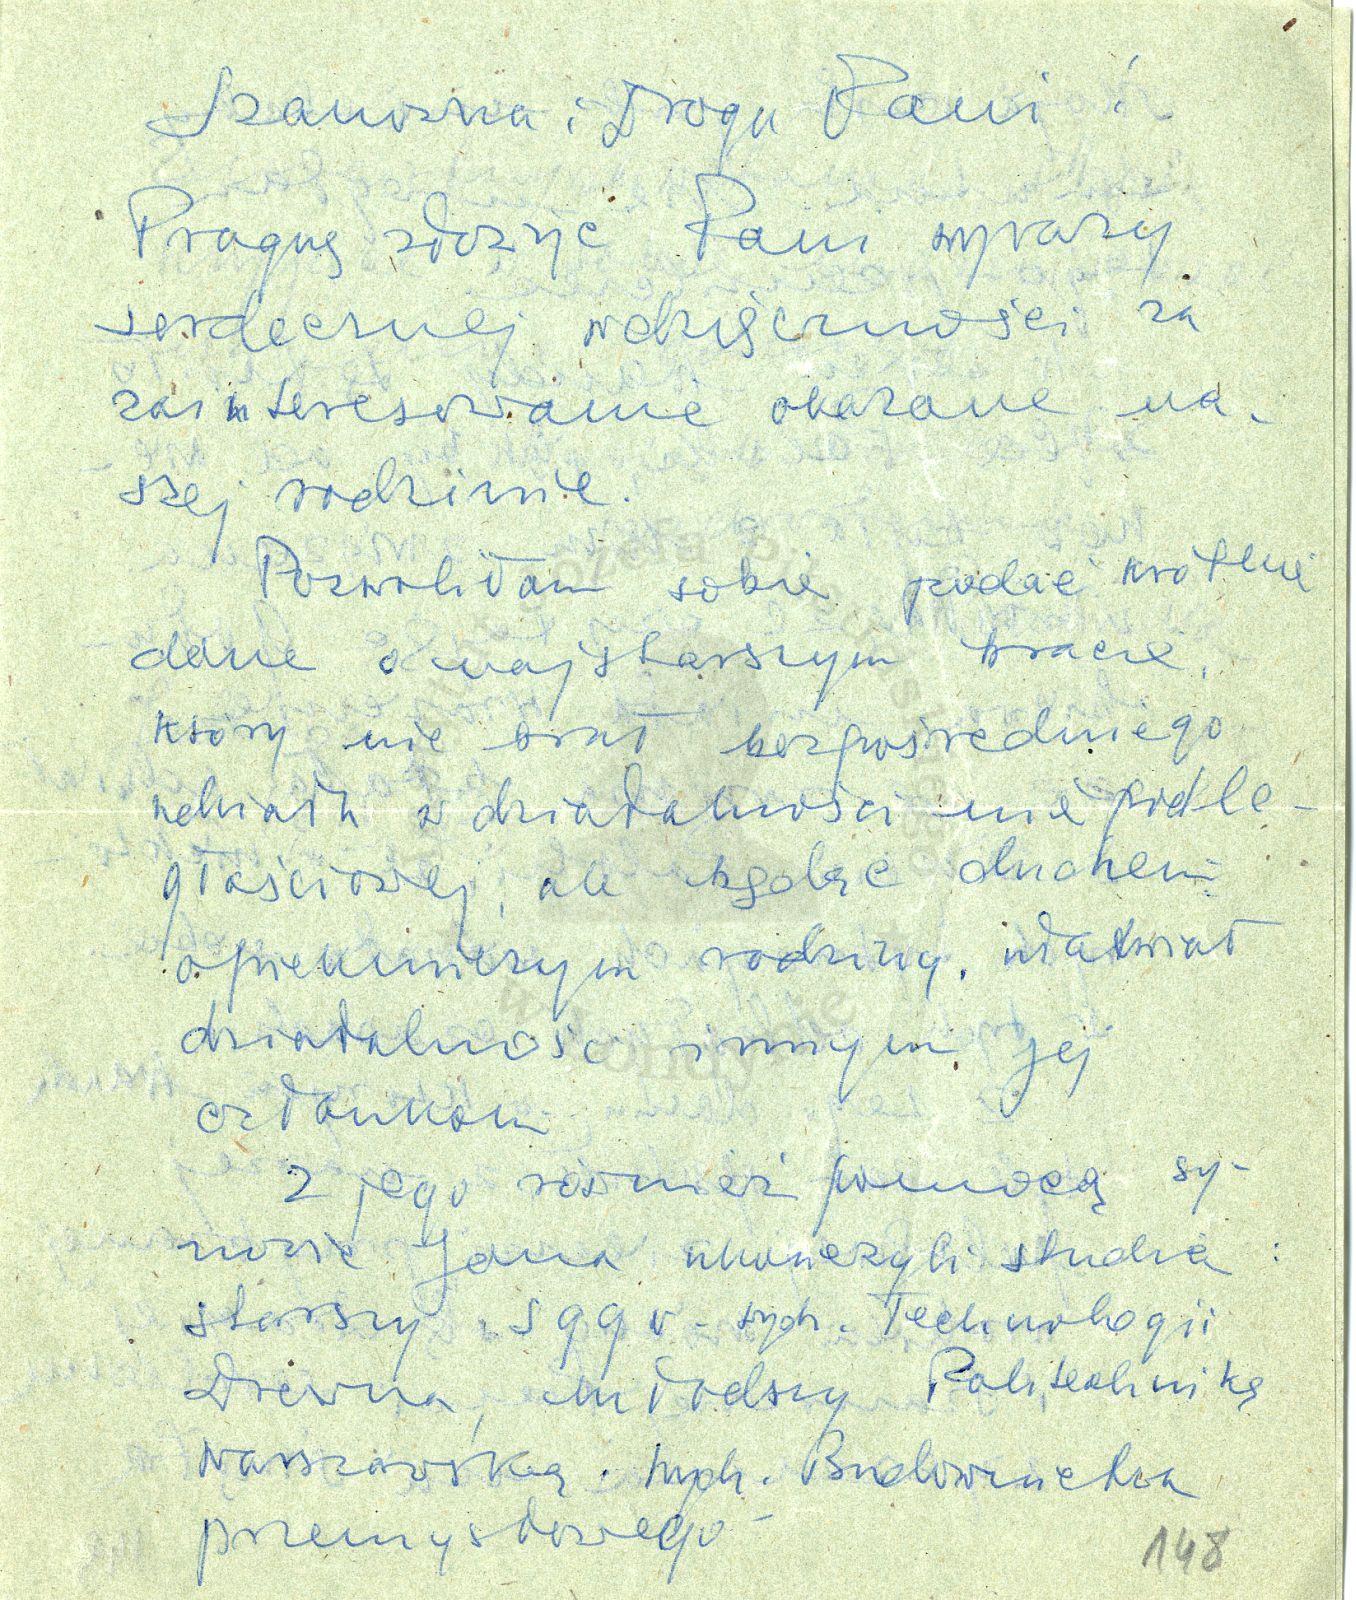 Szanowna i Droga Pani!
Pragnę złożyć Pani wyrazy
serdecznej wdzięczności za
zainteresowanie okazane na-
szej rodzinie.
Pozwoliłam sobie podać krótkie
dane o najstarszym bracie,
który nie brał bezpośredniego
udziału w działalności niepodle-
głościowej, ale będąc duchem
opiekuńczym rodziny, ułatwiał
działalność innym jej
członkom
Z jego również pomocą sy-
nowie Jana ukończyli studia:
starszy. SGGW - wydz. Technologii
Drewna, młodszy Politechnikę
Warszawską. wydz. Budownictwa
przemysłowego -
148